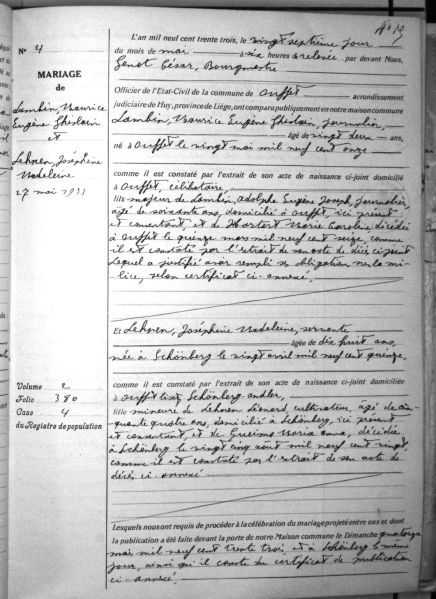 N° 4
MARIAGE
de
Lambin, Maurice
Eugène Ghislain
et
Lehnen, Joséphine
Madeleine.
27 mai 1933
Volume 2
Folio 380
Case 4
du Registre de population
L'an mil neuf cent trente trois, le vingt septième jour
du mois de mai à six heures de relevée, par devant Nous,
Genot César, Bourgmestre
Officier de l'Etat-Civil de la commune de Ouffet arrondissement
judiciaire de Huy, province de Liége, ont comparu publiquement en notre maison commune
Lambin, Maurice Eugène Ghislain, journalier,
âgé de vingt deux ans,
né à Ouffet le vingt mai mil neuf cent onze
comme il est constaté par l'extrait de son acte de naissance ci-joint domicilié
à Ouffet, célibataire,
fils majeur de Lambin, Adolphe Eugène Joseph, journalier,
âgé de soixante ans, domicilié à Ouffet, ici présent
et consentant, et de Marie Caroline décédée
à Ouffet le quinze mars mil neuf cent seize, comme
il est constaté par l'extrait de son acte de décès ci-joint
Lequel a justifié avoir rempli ses obligations sur la mi-
lice, selon certificat ci-annexé.
Et Lehnen, Joséphine Madeleine, servante
âgée de dix huit ans,
née à Schönberg le vingt avril mil neuf cent quinze,
comme il est constaté par l'extrait de son acte de naissance ci-joint domiciliée
à Ouffet Schönberg
fille mineure de Lehnen Léonard, cultivateur, âgé de cin-
quante quatre ans, domicilié à Schönberg, ici présent
et consentant, et de Maria Anna, décédée
à Schönberg le vingt cinq août mil neuf cent vingt
comme il est constaté par l'extrait de son acte de
décès ci-annexé
Lesquels nous ont requis de procéder à la célébration du mariage projeté entre eux et dont
la publication a été faite devant la porte de notre Maison commune le Dimanche quatorze
mai mil neuf cent trente trois, et à Schönberg le même
jour, ainsi qu'il conste du certificat de publication
ci-annexé.